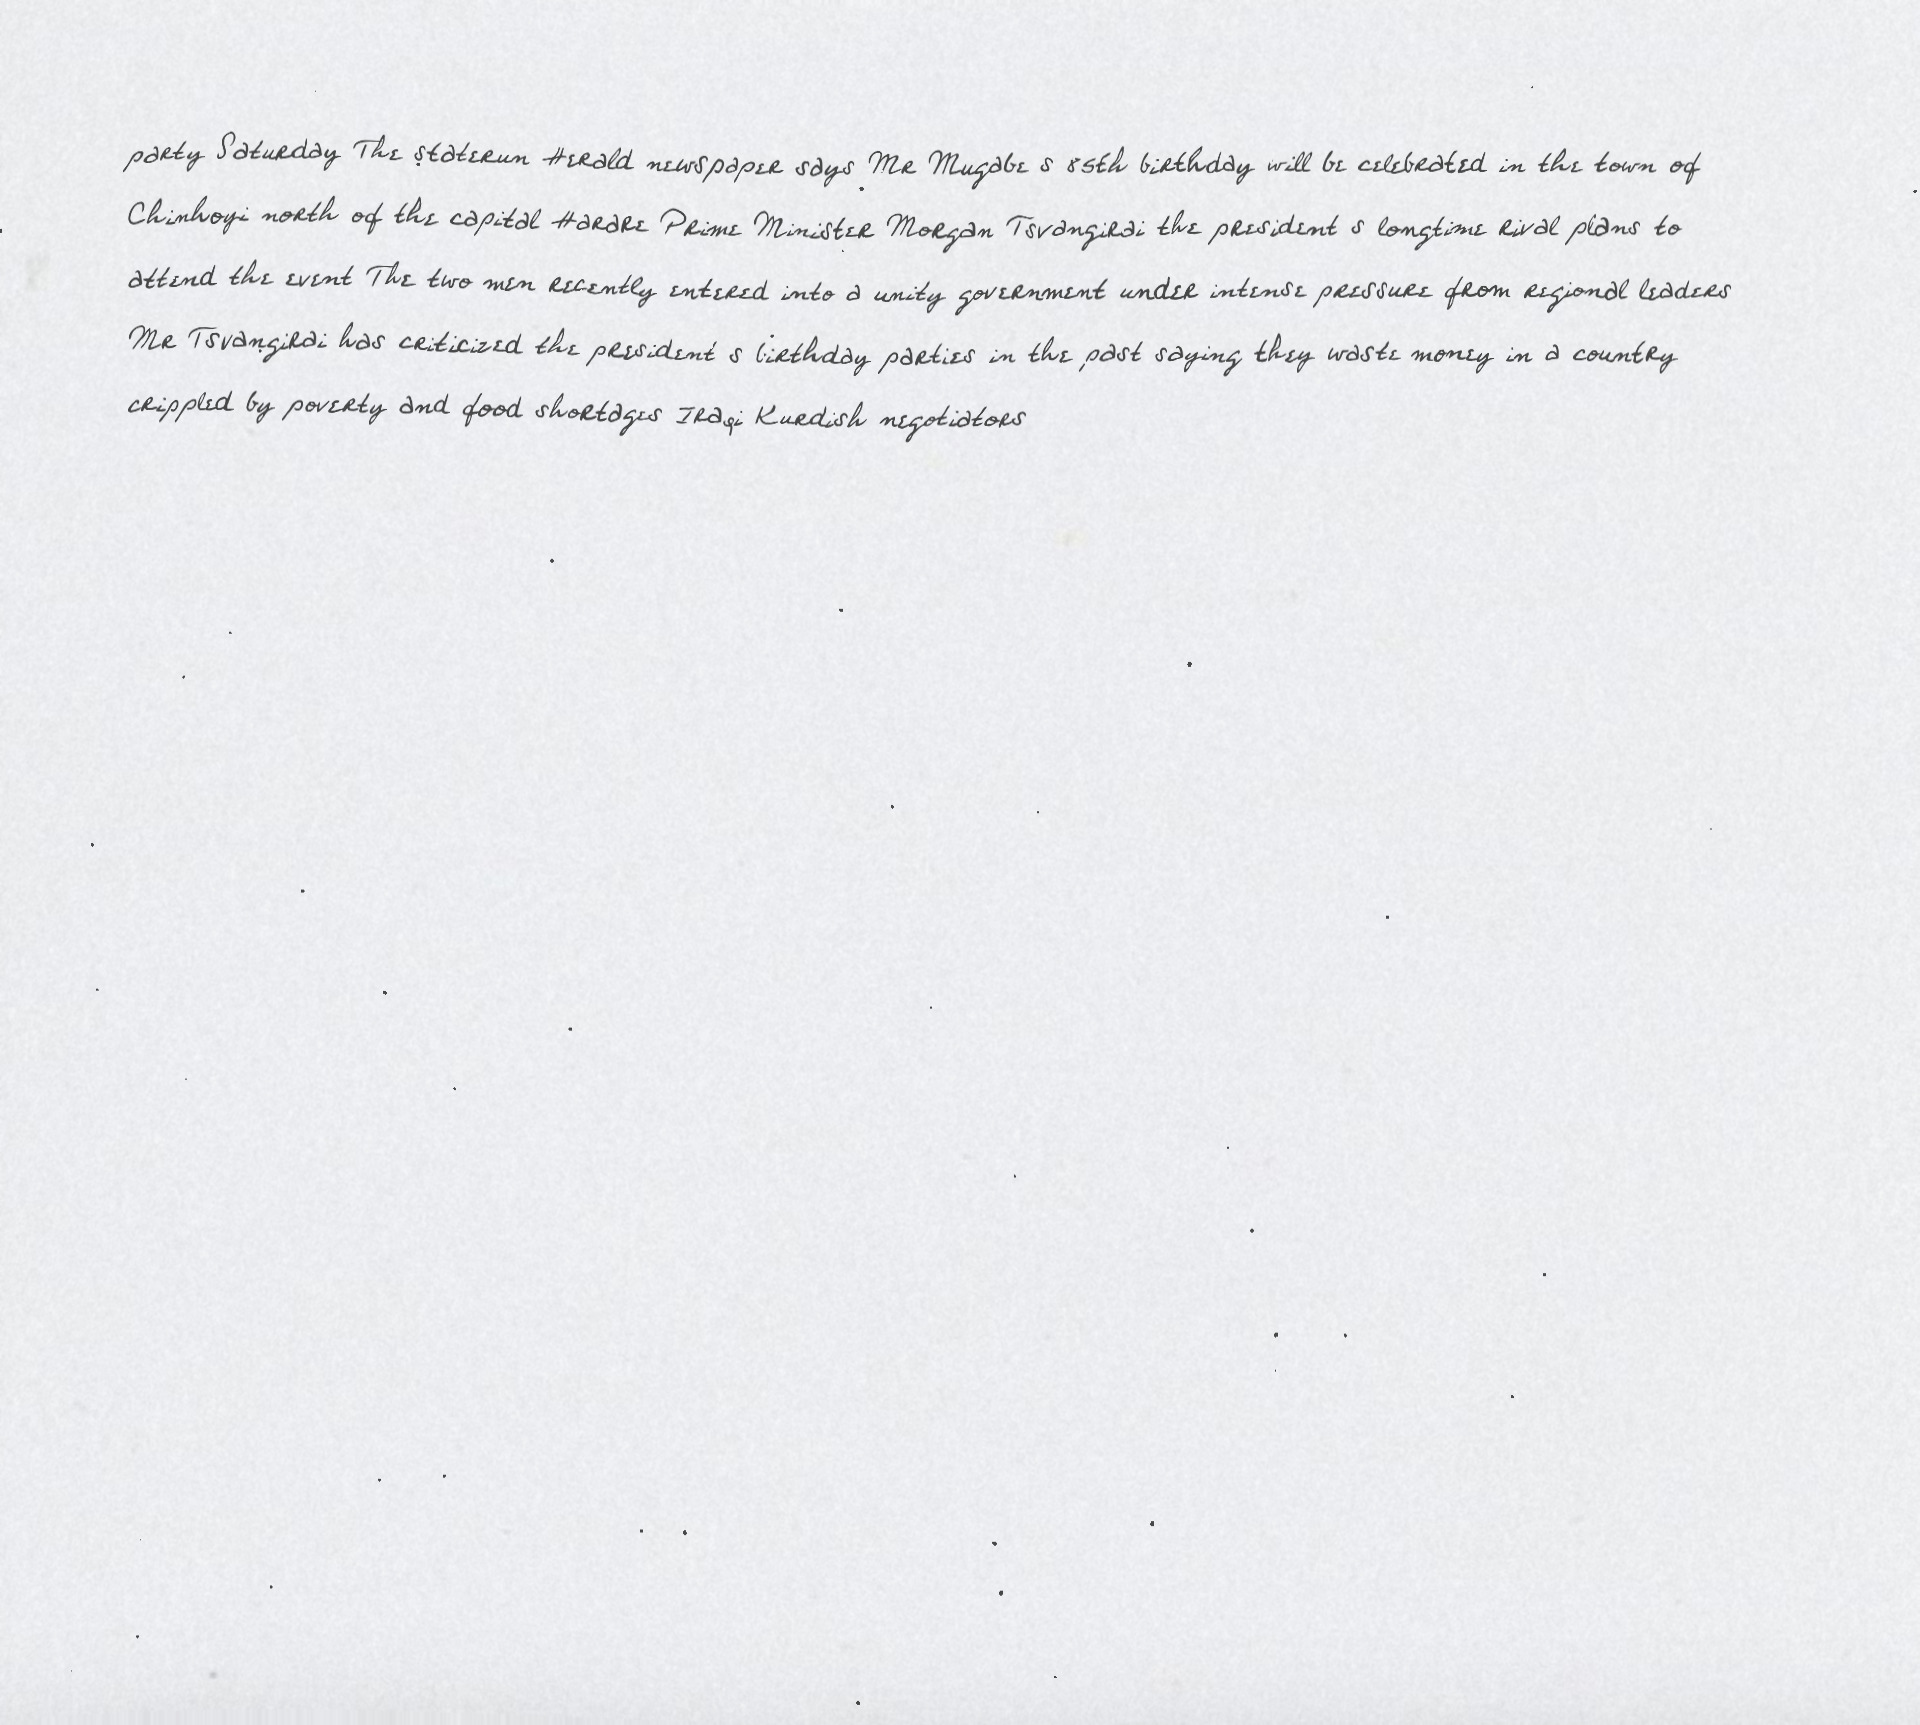 party Saturday The staterun Herald newspaper says Mr Mugabe s 85th birthday will be celebrated in the town of
Chinhoyi north of the capital Harare Prime Minister Morgan Tsvangirai the president s longtime rival plans to
attend the event The two men recently entered into a unity government under intense pressure from regional leaders
Mr Tsvangirai has criticized the president s birthday parties in the past saying they waste money in a country
crippled by poverty and food shortages Iraqi Kurdish negotiators